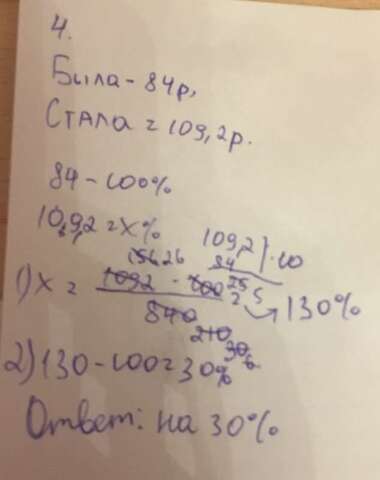 4.
Была - 84р,
Стала = 109,2р.
84 - 100%
109,2 = x%
1) x = 1092 · 100
840
210
→ 130%
2) 130 - 100 = 30%
Ответ: на 30%